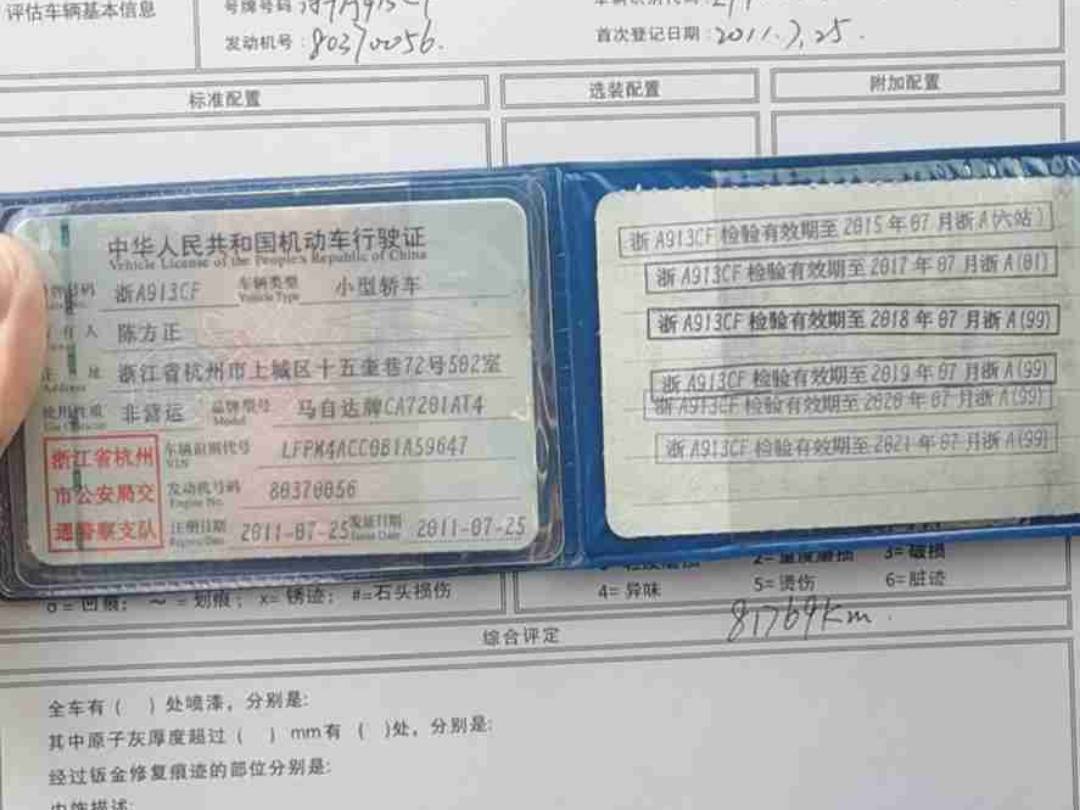 评估车辆基本信息
号牌号码
发动机号: 80370056.
首次登记日期: 2011.7.25.
标准配置
选装配置
附加配置
中华人民共和国机动车行驶证
Vehicle License of the People's Republic of China
浙A913CF 车辆类型 Vehicle Type 小型轿车
人 陈方正
址 浙江省杭州市上城区十五奎巷72号502室
Address
使用性质 非营运 品牌型号 Model 马自达牌CA7201AT4
浙江省杭州
市公安局交
通警察支队
车辆识别代号 VIN LFPM4ACC0B1A59647
发动机号码 Engine No. 80370056
注册日期 2011-07-25 发证日期 Issue Date 2011-07-25
浙A913CF 检验有效期至 2015年07月浙A(六站)
浙A913CF 检验有效期至 2017年07月浙A(01)
浙A913CF 检验有效期至 2018年07月浙A(99)
浙A913CF 检验有效期至 2019年07月浙A(99)
浙A913CF 检验有效期至 2020年07月浙A(99)
浙A913CF 检验有效期至 2021年07月浙A(99)
3=破损
凹痕; ~=划痕; x=锈迹; #=石头损伤
4=异味 5=烫伤 6=脏迹
81769km.
综合评定
全车有( )处喷漆，分别是:
其中原子灰厚度超过( )mm有( )处，分别是:
经过钣金修复痕迹的部位分别是: